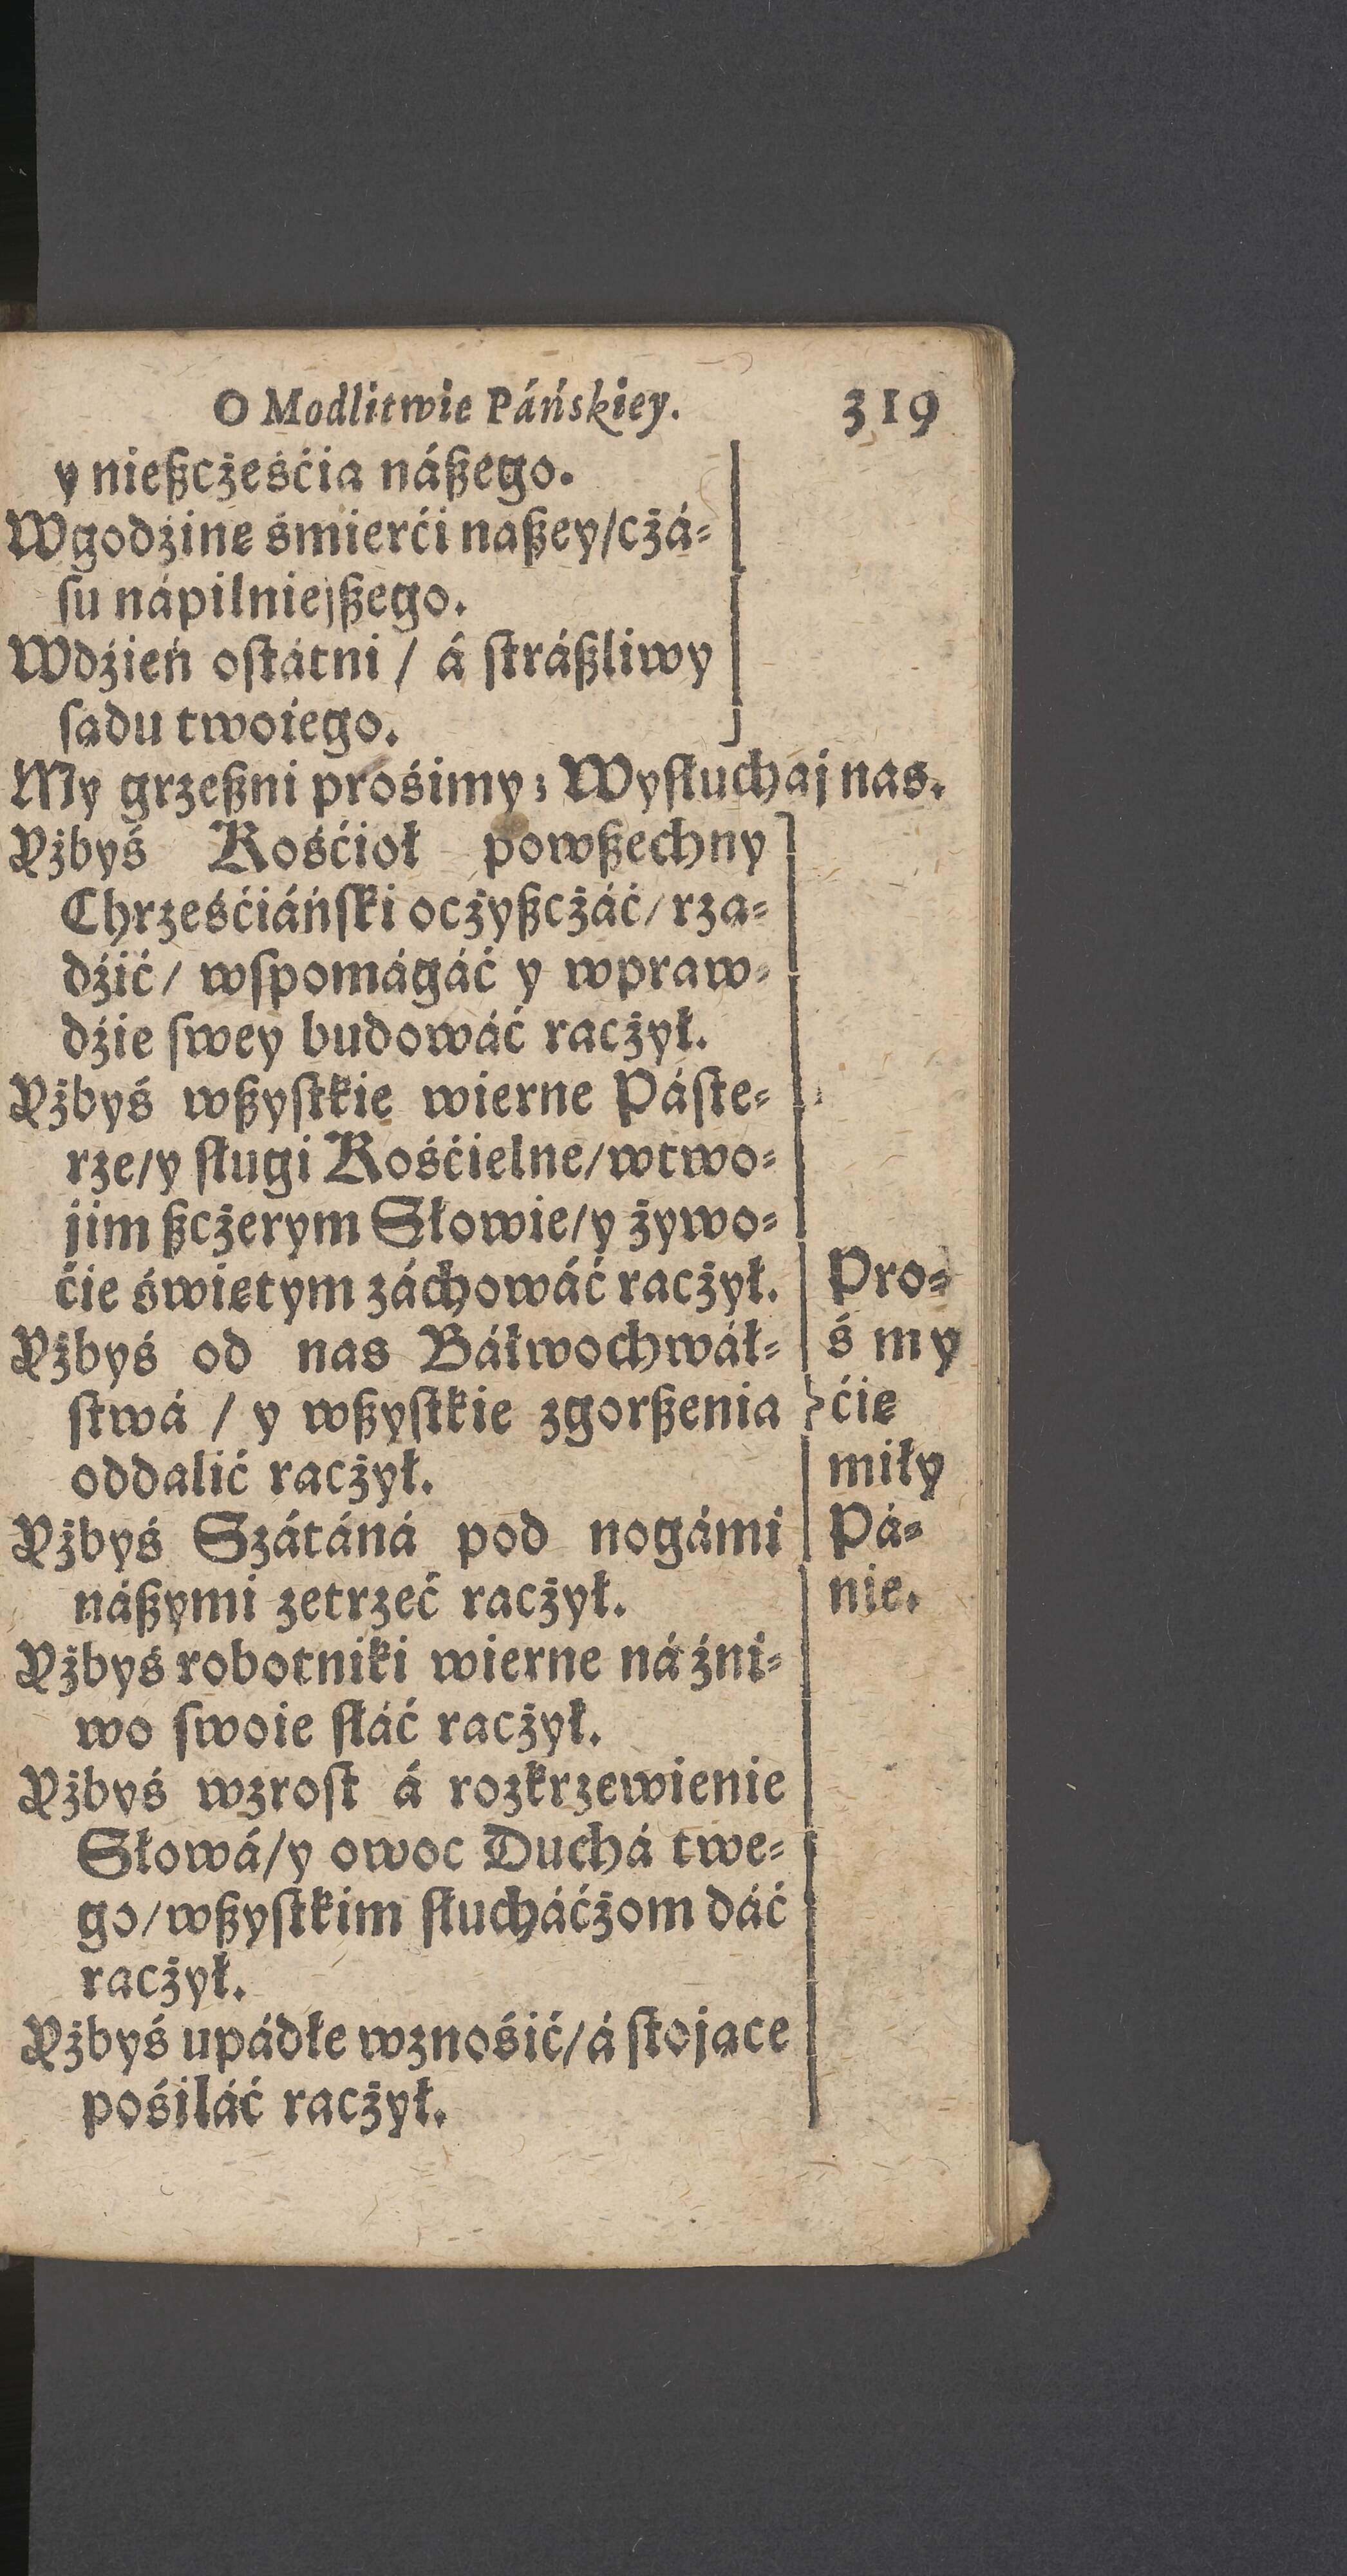 O Modlitwie Páńskiey. 319
y nießcżeśćia náßego.
Wgodźinę śmierći naßey/cżá⸗
ſu nápilniejßego.
Wdźień oſtátni / á ſtráßliwy
ſądu twoiego.
My grzeßni prośimy; Wyſłuchaj nas.
Ażbyś Kośćioł powßechny
Chrześćiáńſki ocżyßcżáć/ rzą⸗
dźić/ wſpomágáć y wpraw⸗
dźie ſwey budowáć racżył.
Ażbyś wßyſtkie wierne Páſte⸗
rze/y ſługi Kośćielne/wtwo⸗
jim ßcżerym Słowie/y żywo⸗
ćie świętym záchowáć racżył.
Ażbyś od nas Báłwochwáł⸗
ſtwá / y wßyſtkie zgorßenia
oddalić racżył.
Ażbyś Szátáná pod nogámi
náßymi zetrzeć racżył.
Ażbyś robotniki wierne ná żni⸗
wo ſwoie ſłáć racżył.
Ażbyś wzroſt á rozkrzewienie
Słowá/y owoc Duchá twe⸗
go/wßyſtkim ſłucháćżom dáć
racżył.
Ażbyś upádłe wznośić/á ſtojące
pośiláć racżył.
Pro⸗
ś my
ćię
miły
Pá⸗
nie.